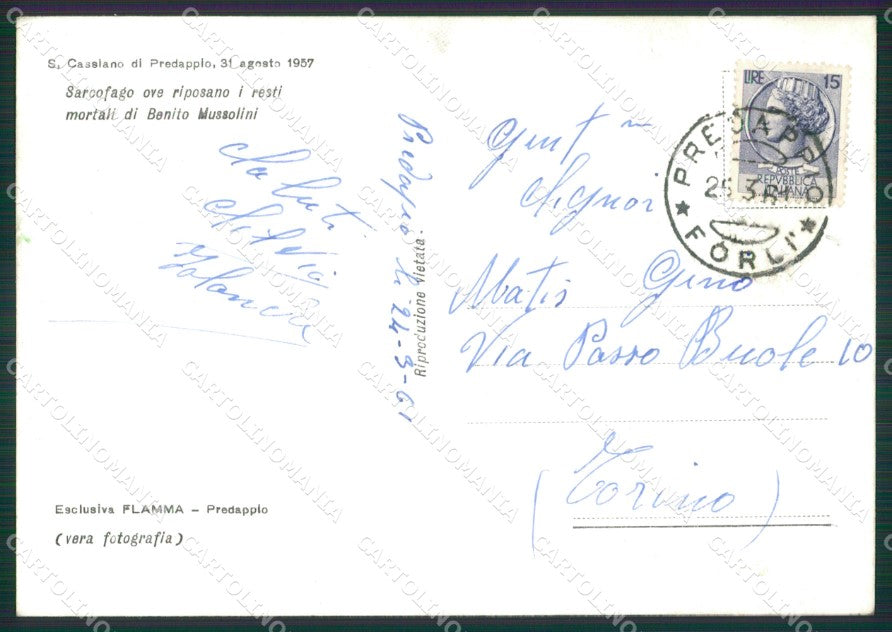 S. Cassiano di Predappio, 31 agosto 1957
Sarcofago ove riposano i resti
mortali di Benito Mussolini
Saluti
Predappio li 24-3-61
Riproduzione vietata -
LIRE 15
REPVBBLICA
ITALIANA
PREDAPPIO
25 3 61
FORLI'
Gent
Signor
Matis Gino
Via Passo Buole 10
(Torino)
Esclusiva FLAMMA - Predappio
(vera fotografia)
CARTOLINOMANIA